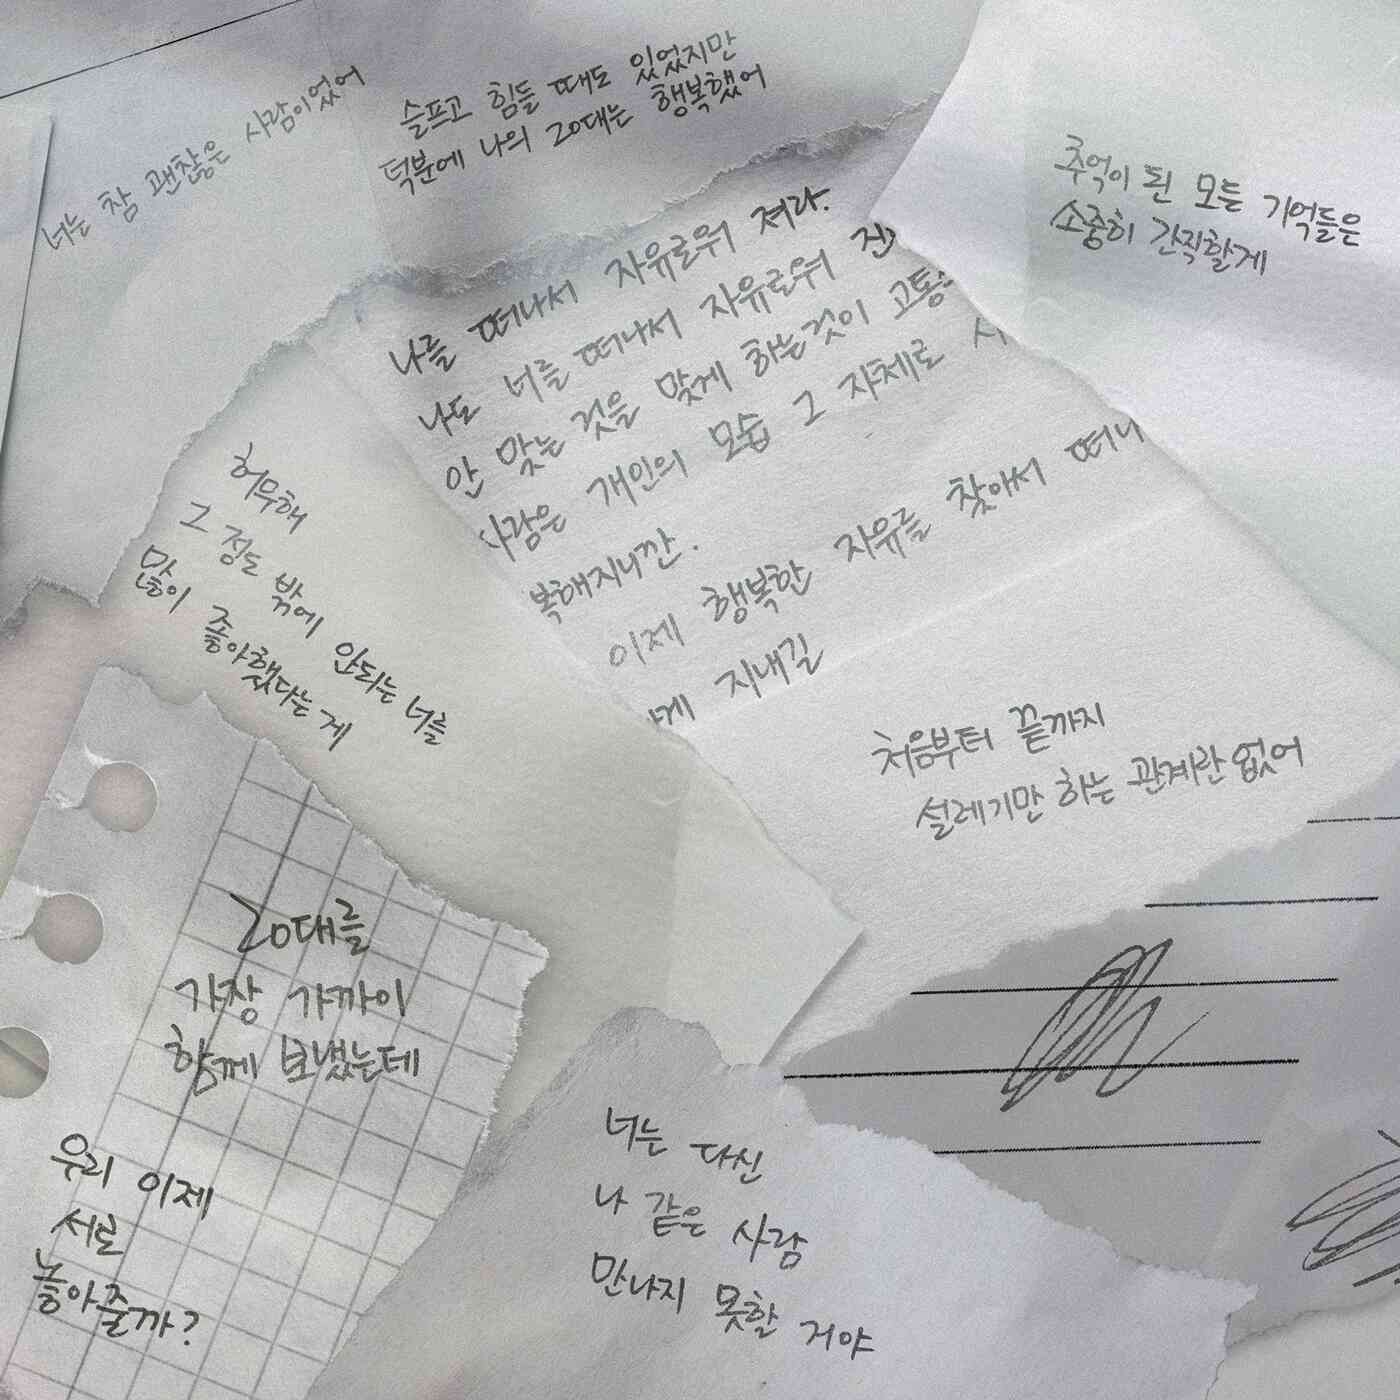 너는 참 괜찮은 사람이었어
슬프고 힘들 때도 있었지만
덕분에 나의 20대는 행복했어
추억이 된 모든 기억들은
소중히 간직할게
나를 떠나서 자유로워 져라.
나도 너를 떠나서 자유로워
안 맞는 것을 맞게 하는것이
사람은 개인의 모습 그 자체로
복해지니깐.
이제 행복한 자유를 찾아서 떠나
게 지내길
처음부터 끝까지
설레기만 하는 관계란 없어
허무해
그 정도 밖에 안되는 너를
많이 좋아했다는 게
20대를
가장 가까이
함께 보냈는데
우리 이제
서로
놓아줄까?
너는 다신
나 같은 사람
만나지 못할 거야